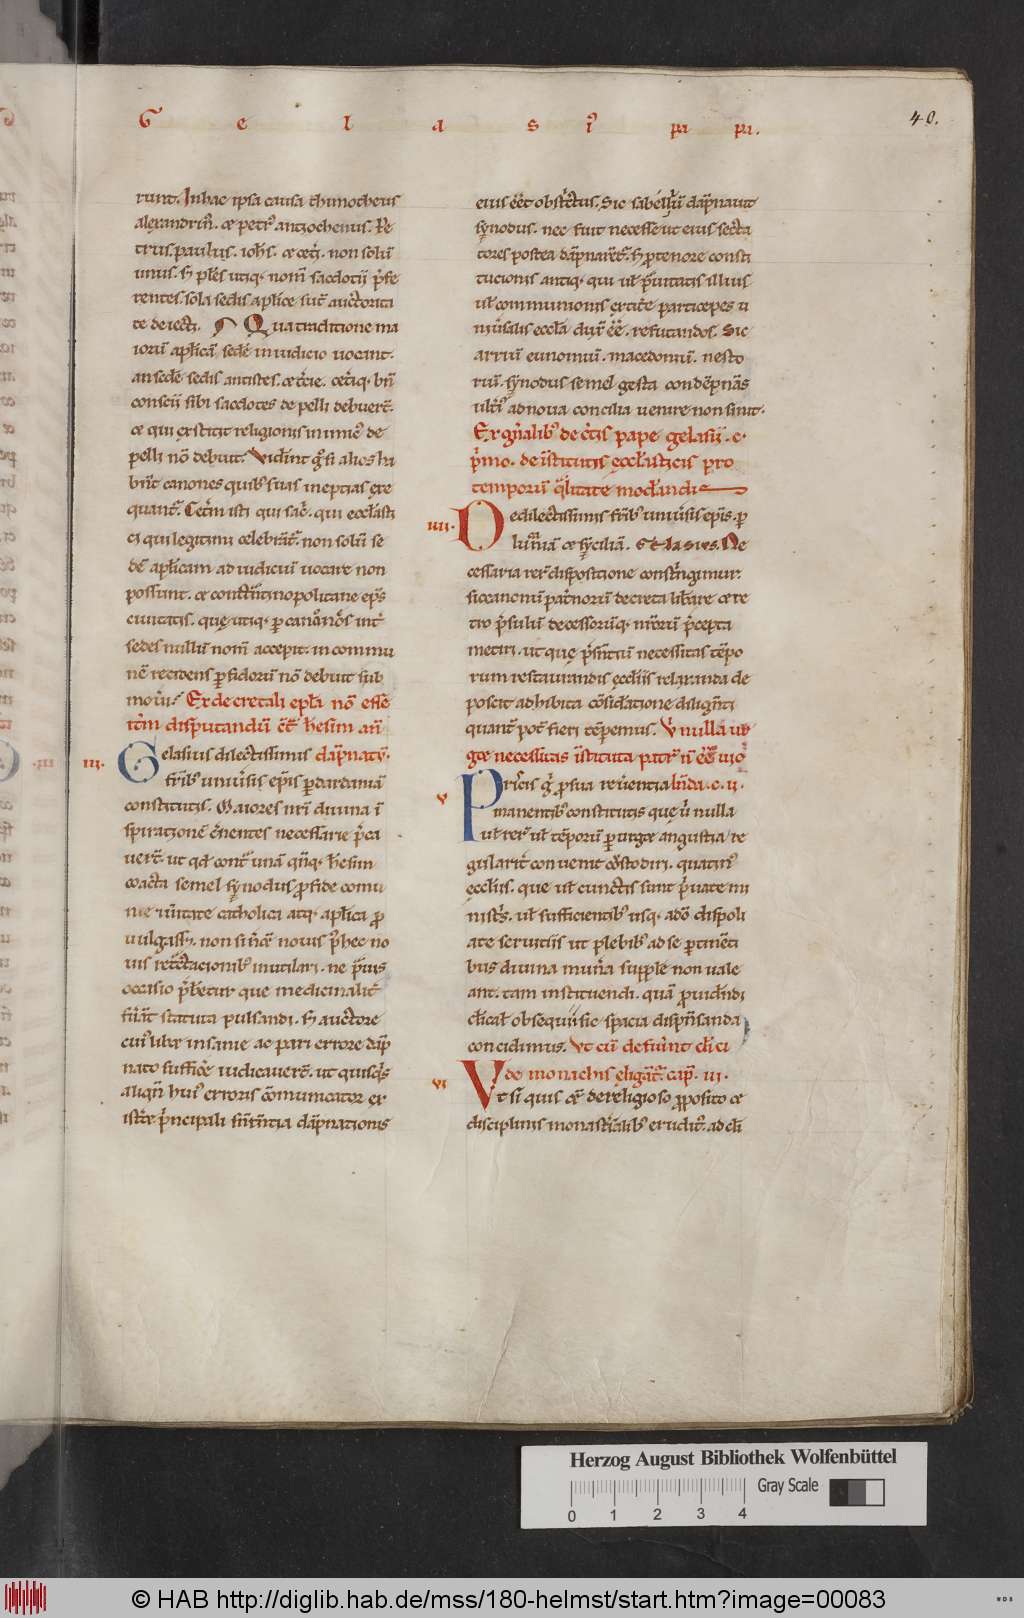 G e l a s i' pa pa.
40.
runt. In hac ipsa causa thimotheus
alexandrin'. & petr' antiochenus. Pe
trus. paulus. ioh's. & cet'i. non solū
unus. s; ples utiq; nom̄ sacdotii p'fe
rentes. sola sedis aplice sut auctorita
te deiecti. Qua traditione ma
iorū aplicā sedē in iudicio uocant.
an sedē sedis antistes. & t'cie. cet'iq; bn̄
conscii sibi sacdotes depelli debuer̄.
& qui exstitit religionis inimic' de
pelli nō debuit. Vidint g° si alios ha
bn̄t canones quib; suas ineptias exe
quant'. Cet'm isti qui sac'. qui eccl'asti
ci qui legitimi celebrāt'. non solū se
dē aplicam ad iudiciū uocare non
possunt. & constātinopolitane ep's
ciuitatis. quę utiq; p canones int'
sedes nullū nom̄ accepit. in commu
nē recidens pfidorū nō debuit sub
mou'i. Ex decretali epl'a nō esse
it'm disputandū c̄t' hesim an̄
III. Gelasius dilectissimis dāpnatā.
frib; uniu'sis ep'is p dardaniā
constitutis. Maiores nr̄i diuina ī
spiratione c'nentes necessarie p'ca
uer̄. ut qd cont' unā qūq; hesim
coacta semel synodus p fide comu
nie u'itate catholica atq; aplica p
uulgass;. non sin'e nouis p' hec no
uis ret'ctacionib; mutilari. ne p'uis
occisio p'betur que medicinalit'
fu'at statuta pulsandi. s; auctore
cui' libet insanie ac pari errore dāp
nato suffic'e iudicauer̄. ut quisq's
aliqn̄ hui' erroris cōmunicator ex
ist'et p'ncipali sn̄tentia dāpnationis
eius eēt obst'ctus. Sic sabelliū dāpnauit
synodus. nec fuit necesse ut eius secta
tores postea dāpnarēt'. s; p tenore consti
tucionis antiq; qui ul' p'uitatis illius
ul' communionis extite' participes u
niu'salis eccl'a dux' eē. refutandos. Sic
arriū eunomiū. macedoniū. nesto
riū. synodus semel gesta condēpnās
ult'i' ad noua concilia uenire non sinit.
Ex gn̄alib; dec'tis pape gelasii. c.
p'mo. de īstitutis eccl'asticis pro
temporū q'litate mod'andi
IIII. Dedilectissimis frib; uniu'sis ep'is. p
lucaniā & syciliā. Gelasius. Ne
cessaria rer' dispositione const'ngimur.
sic canonū pat'norū decreta librare & re
tro p'sulū decessorūq; nr̄orū p'cepta
metiri. ut quę p'sn̄tiū necessitas tēpo
rum restaurandis ęccliis relaxanda de
poscit adhibita cōsid'atione dilign̄ti
quant' pot' fieri tēperemus. V' nulla ur
get necessitas īstituta patr' īuiolata
V Pricis g° p sua reu'entia hn̄da. c. II.
manentib; constitutis que u' nulla
ul' rer' ul' tēporū p urget angustia re
gularit' conuenit custodiri. quatin'
ęccliis. que ul' cunctis sunt p'uate mi
nist'is. ul' sufficientib; usq; adeo dispoli
ate seruitiis ut plebib; ad se ptinēti
bus diuina mun'a supple non uale
ant. tam instituendi. quā p'uidēdi
cl'ical' obsequii sic spacia dispēsanda
concidimus. Vt cū defuint cl'ici
VI de monachis eligāt'. cap̄. VI.
Vt si quis & de religioso pposito &
disciplinis monast'alib; erudit'. ad cl'i
Herzog August Bibliothek Wolfenbüttel
Gray Scale
0 1 2 3 4
© HAB http://diglib.hab.de/mss/180-helmst/start.htm?image=00083